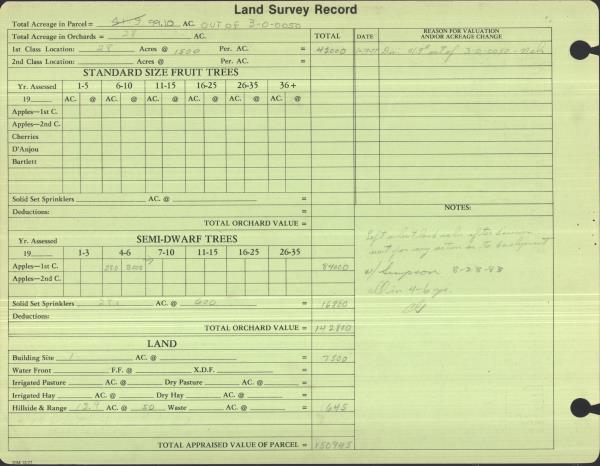 Land Survey Record
Total Acreage in Parcel = 41.5 99.10 AC. OUT OF 3-0-0050
Total Acreage in Orchards = 28 AC. TOTAL DATE REASON FOR VALUATION AND/OR ACREAGE CHANGE
1st Class Location: 28 Acres @ 1500 Per. AC. = 42000 out of 3-0-0050
2nd Class Location: Acres @ Per. AC. =
STANDARD SIZE FRUIT TREES
Yr. Assessed 1-5 6-10 11-15 16-25 26-35 36+
19 AC. @ AC. @ AC. @ AC. @ AC. @ AC. @
Apples—1st C.
Apples—2nd C.
Cherries
D'Anjou
Bartlett
Solid Set Sprinklers AC. @ =
Deductions: =
TOTAL ORCHARD VALUE =
NOTES:
Yr. Assessed SEMI-DWARF TREES
19 1-3 4-6 7-10 11-15 16-25 26-35
Apples—1st C. 28.0 3000 84000
Apples—2nd C.
Solid Set Sprinklers 28.0 AC. @ 600 = 16800
Deductions:
TOTAL ORCHARD VALUE = 142800
w/ Simpson 8-28-83
all in 4-6 yr.
LAND
Building Site 1 AC. @ = 7500
Water Front F.F. @ X.D.F. =
Irrigated Pasture AC. @ Dry Pasture AC. @ =
Irrigated Hay AC. @ Dry Hay AC. @ =
Hillside & Range 12.9 AC. @ 50 Waste AC. @ = 645
TOTAL APPRAISED VALUE OF PARCEL = 150945